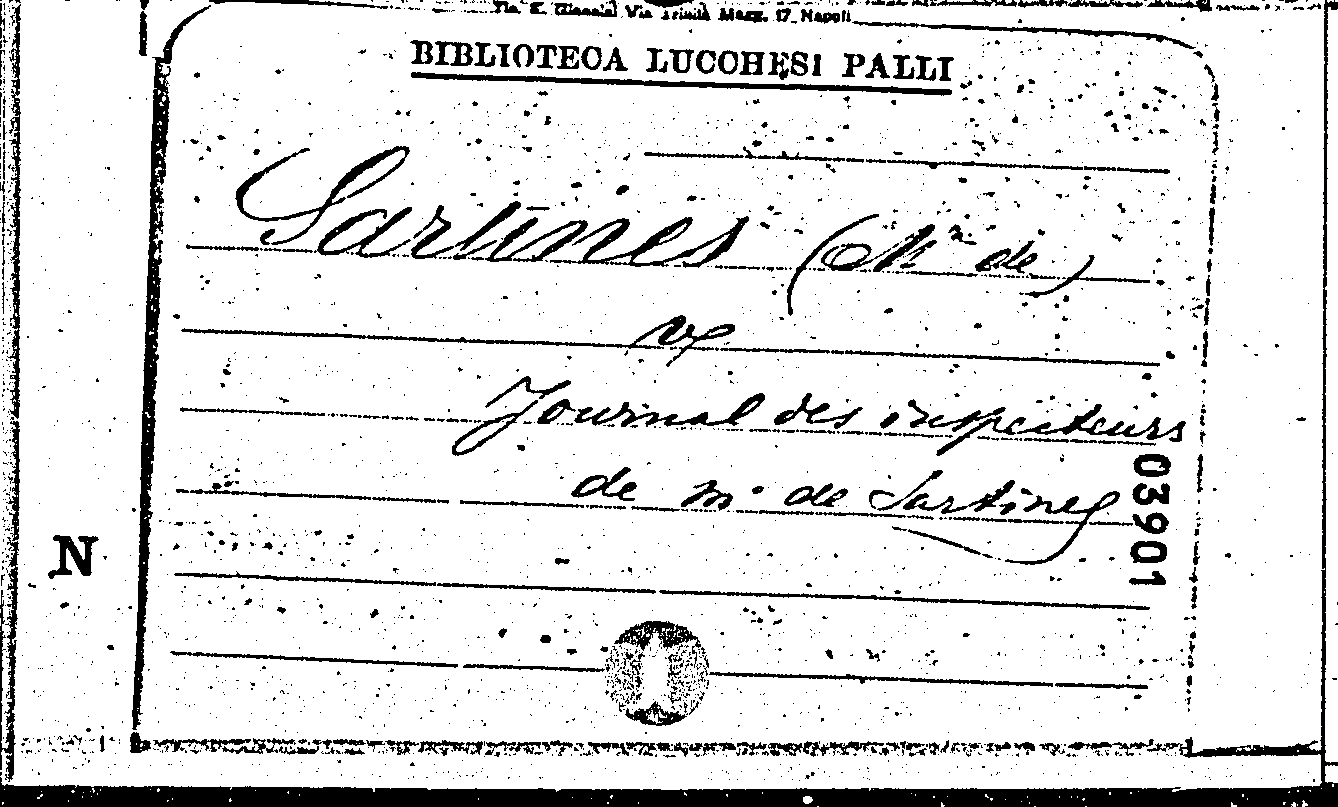 Via Trinità Magg. 17 Napoli
BIBLIOTECA LUCCHESI PALLI
Sartines (Mr de)
Journal des inspecteurs
de m. de Sartines
03901
N